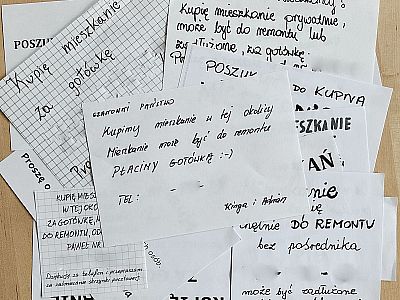 POSZU
Kupię mieszkanie
za gotówkę
Kupię mieszkanie prywatnie,
może być do remontu lub
zadłużone, za gotówkę.
POSZU
DO KUPNA
MIESZKANIE
SZANOWNI PAŃSTWO
Kupimy mieszkanie w tej okolicy
Mieszkanie może być do remontu
PŁACIMY GOTÓWKĄ :-)
TEL: - -
Kinga i Adrian
Proszę o
KUPIĘ MIESZ
W TEJ OKO
ZA GOTÓWKĘ, M
DO REMONTU, OD
PAWEŁ NR
Dziękuję za telefon i przepraszam
za zaśmiecanie skrzynki pocztowej.
DO REMONTU
bez pośrednika
- -
może być zadłużone